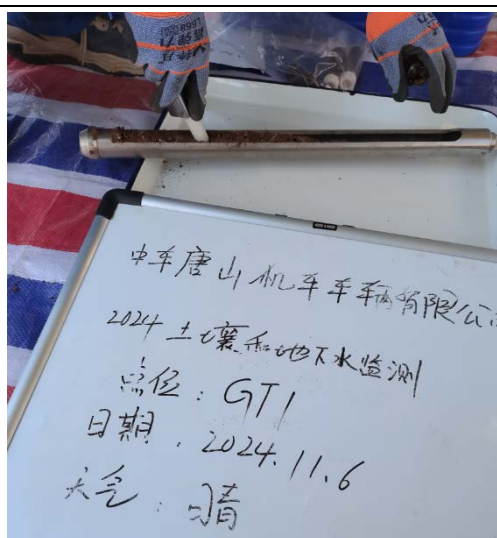 中车唐山机车车辆有限公
2024土壤和地下水监测
点位：GT1
日期：2024.11.6
天气：晴